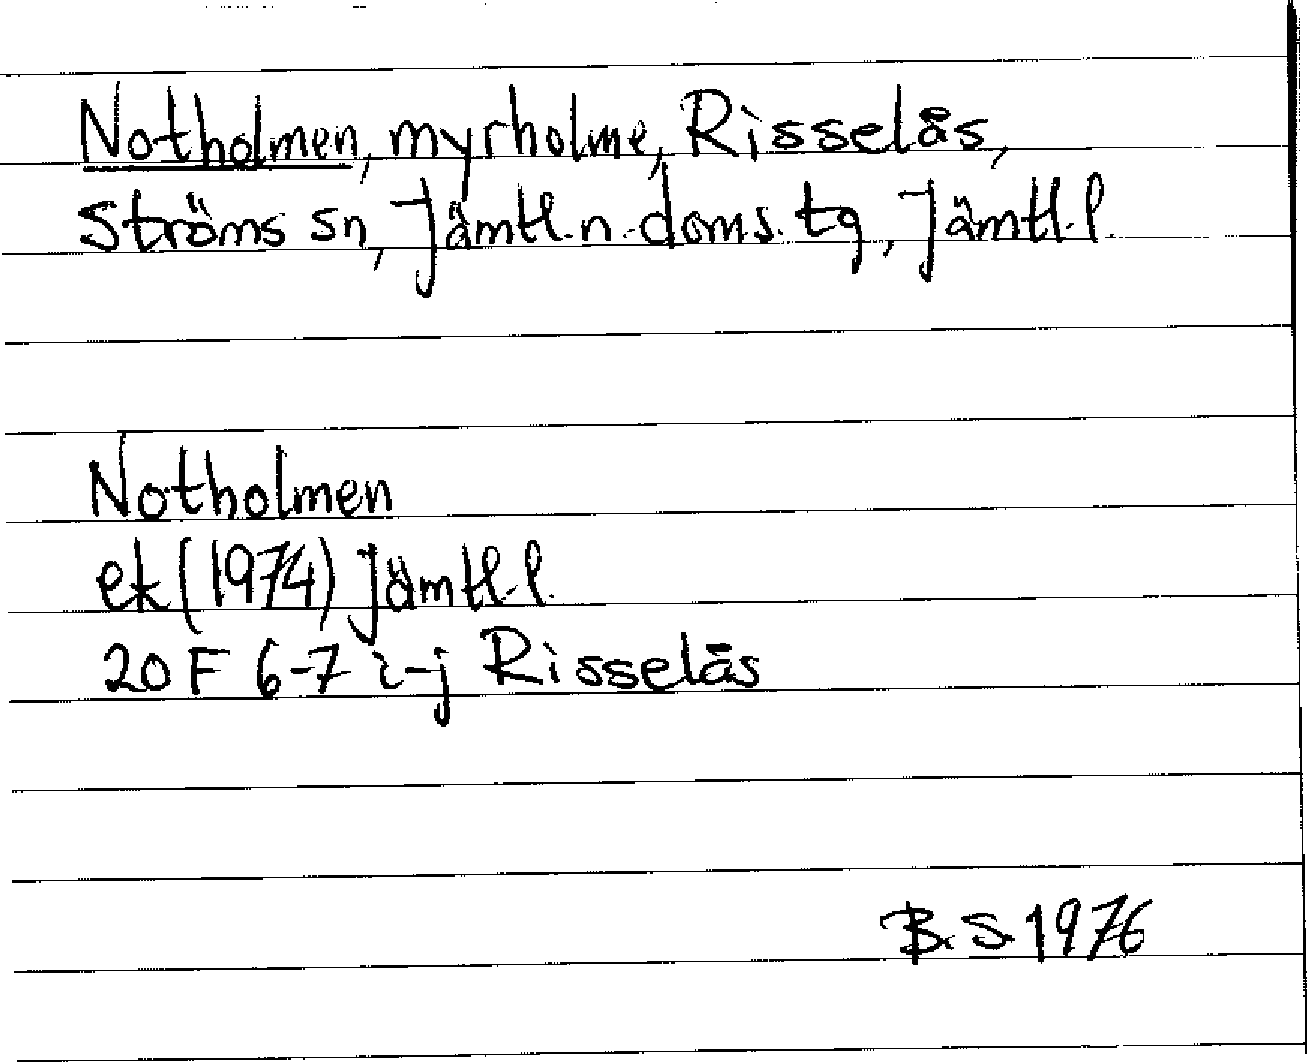 Notholmen, myrholme, Risselås,
Ströms sn, Jämtl. n. doms. tg, Jämtl. l.
Notholmen
ek (1974) Jämtl. l.
20 F 6-7 i-j Risselås
B. S. 1976